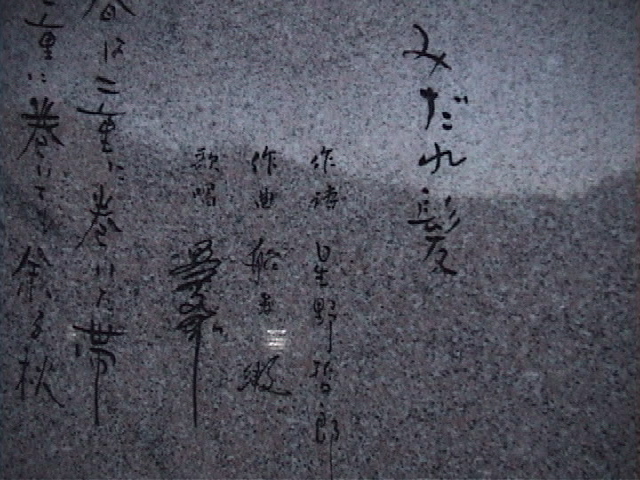 みだれ髪
作詩 星野哲郎
作曲 船村 徹
歌唱
春は二重に巻いた帯
三重に巻いても余る秋